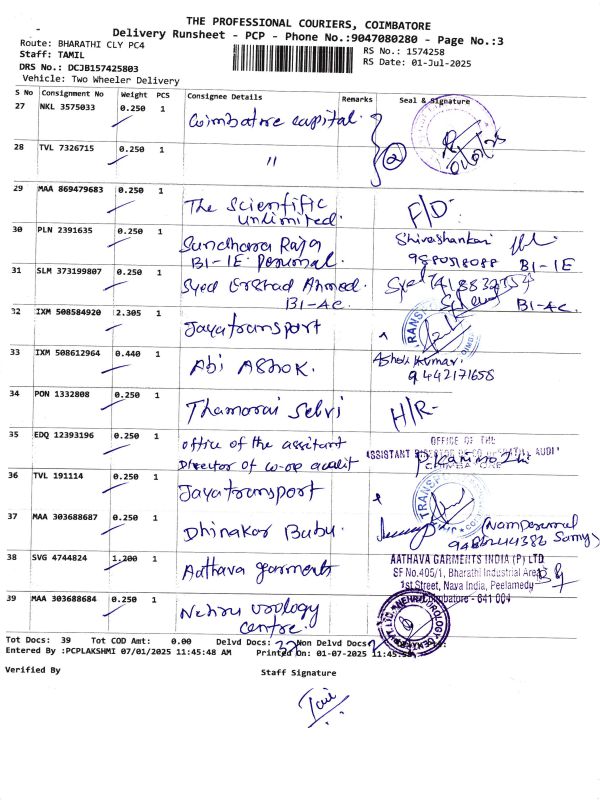 THE PROFESSIONAL COURIERS, COIMBATORE
Delivery Runsheet - PCP - Phone No.:9047080280 - Page No.:3
Route: BHARATHI CLY PC4
RS No.: 1574258
Staff: TAMIL
RS Date: 01-Jul-2025
DRS No.: DCJB157425803
Vehicle: Two Wheeler Delivery
S No Consignment No Weight PCS Consignee Details Remarks Seal & Signature
27 NKL 3575033 0.250 1 Coimbatore capital.
28 TVL 7326715 0.250 1 "
2
29 MAA 869479683 0.250 1 The Scientific
unlimited. F/D.
30 PLN 2391635 0.250 1 Sundhara Raja Shivashankar
B1-1E Perumal. B1-1E
31 SLM 373199807 0.250 1 Syed Ershad Ahmed. Syed
B1-4C. B1-4C.
32 IXM 508584920 2.305 1 Jayatransport
33 IXM 508612964 0.440 1 Abi Ashok. Ashok Kumar.
9442171658
34 PON 1332808 0.250 1 Thamarai Selvi H/R-
35 EDQ 12393196 0.250 1 office of the assitant OFFICE OF THE
Director of co-op audit ASSISTANT
COIMBATORE
36 TVL 191114 0.250 1 Jayatransport
37 MAA 303688687 0.250 1 Dhinakar Babu. (Namperumal
Samy)
38 SVG 4744824 1.200 1 Aathava garments AATHAVA GARMENTS INDIA (P) LTD
SF No.405/1, Bharathi Industrial Area
1st Street, Nava India, Peelamedu
Coimbatore - 641 004
39 MAA 303688684 0.250 1 Nehru urology
centre.
Tot Docs: 39 Tot COD Amt: 0.00 Delvd Docs: 37 Non Delvd Docs: 2
Entered By :PCPLAKSHMI 07/01/2025 11:45:48 AM Printed On: 01-07-2025
Verified By Staff Signature